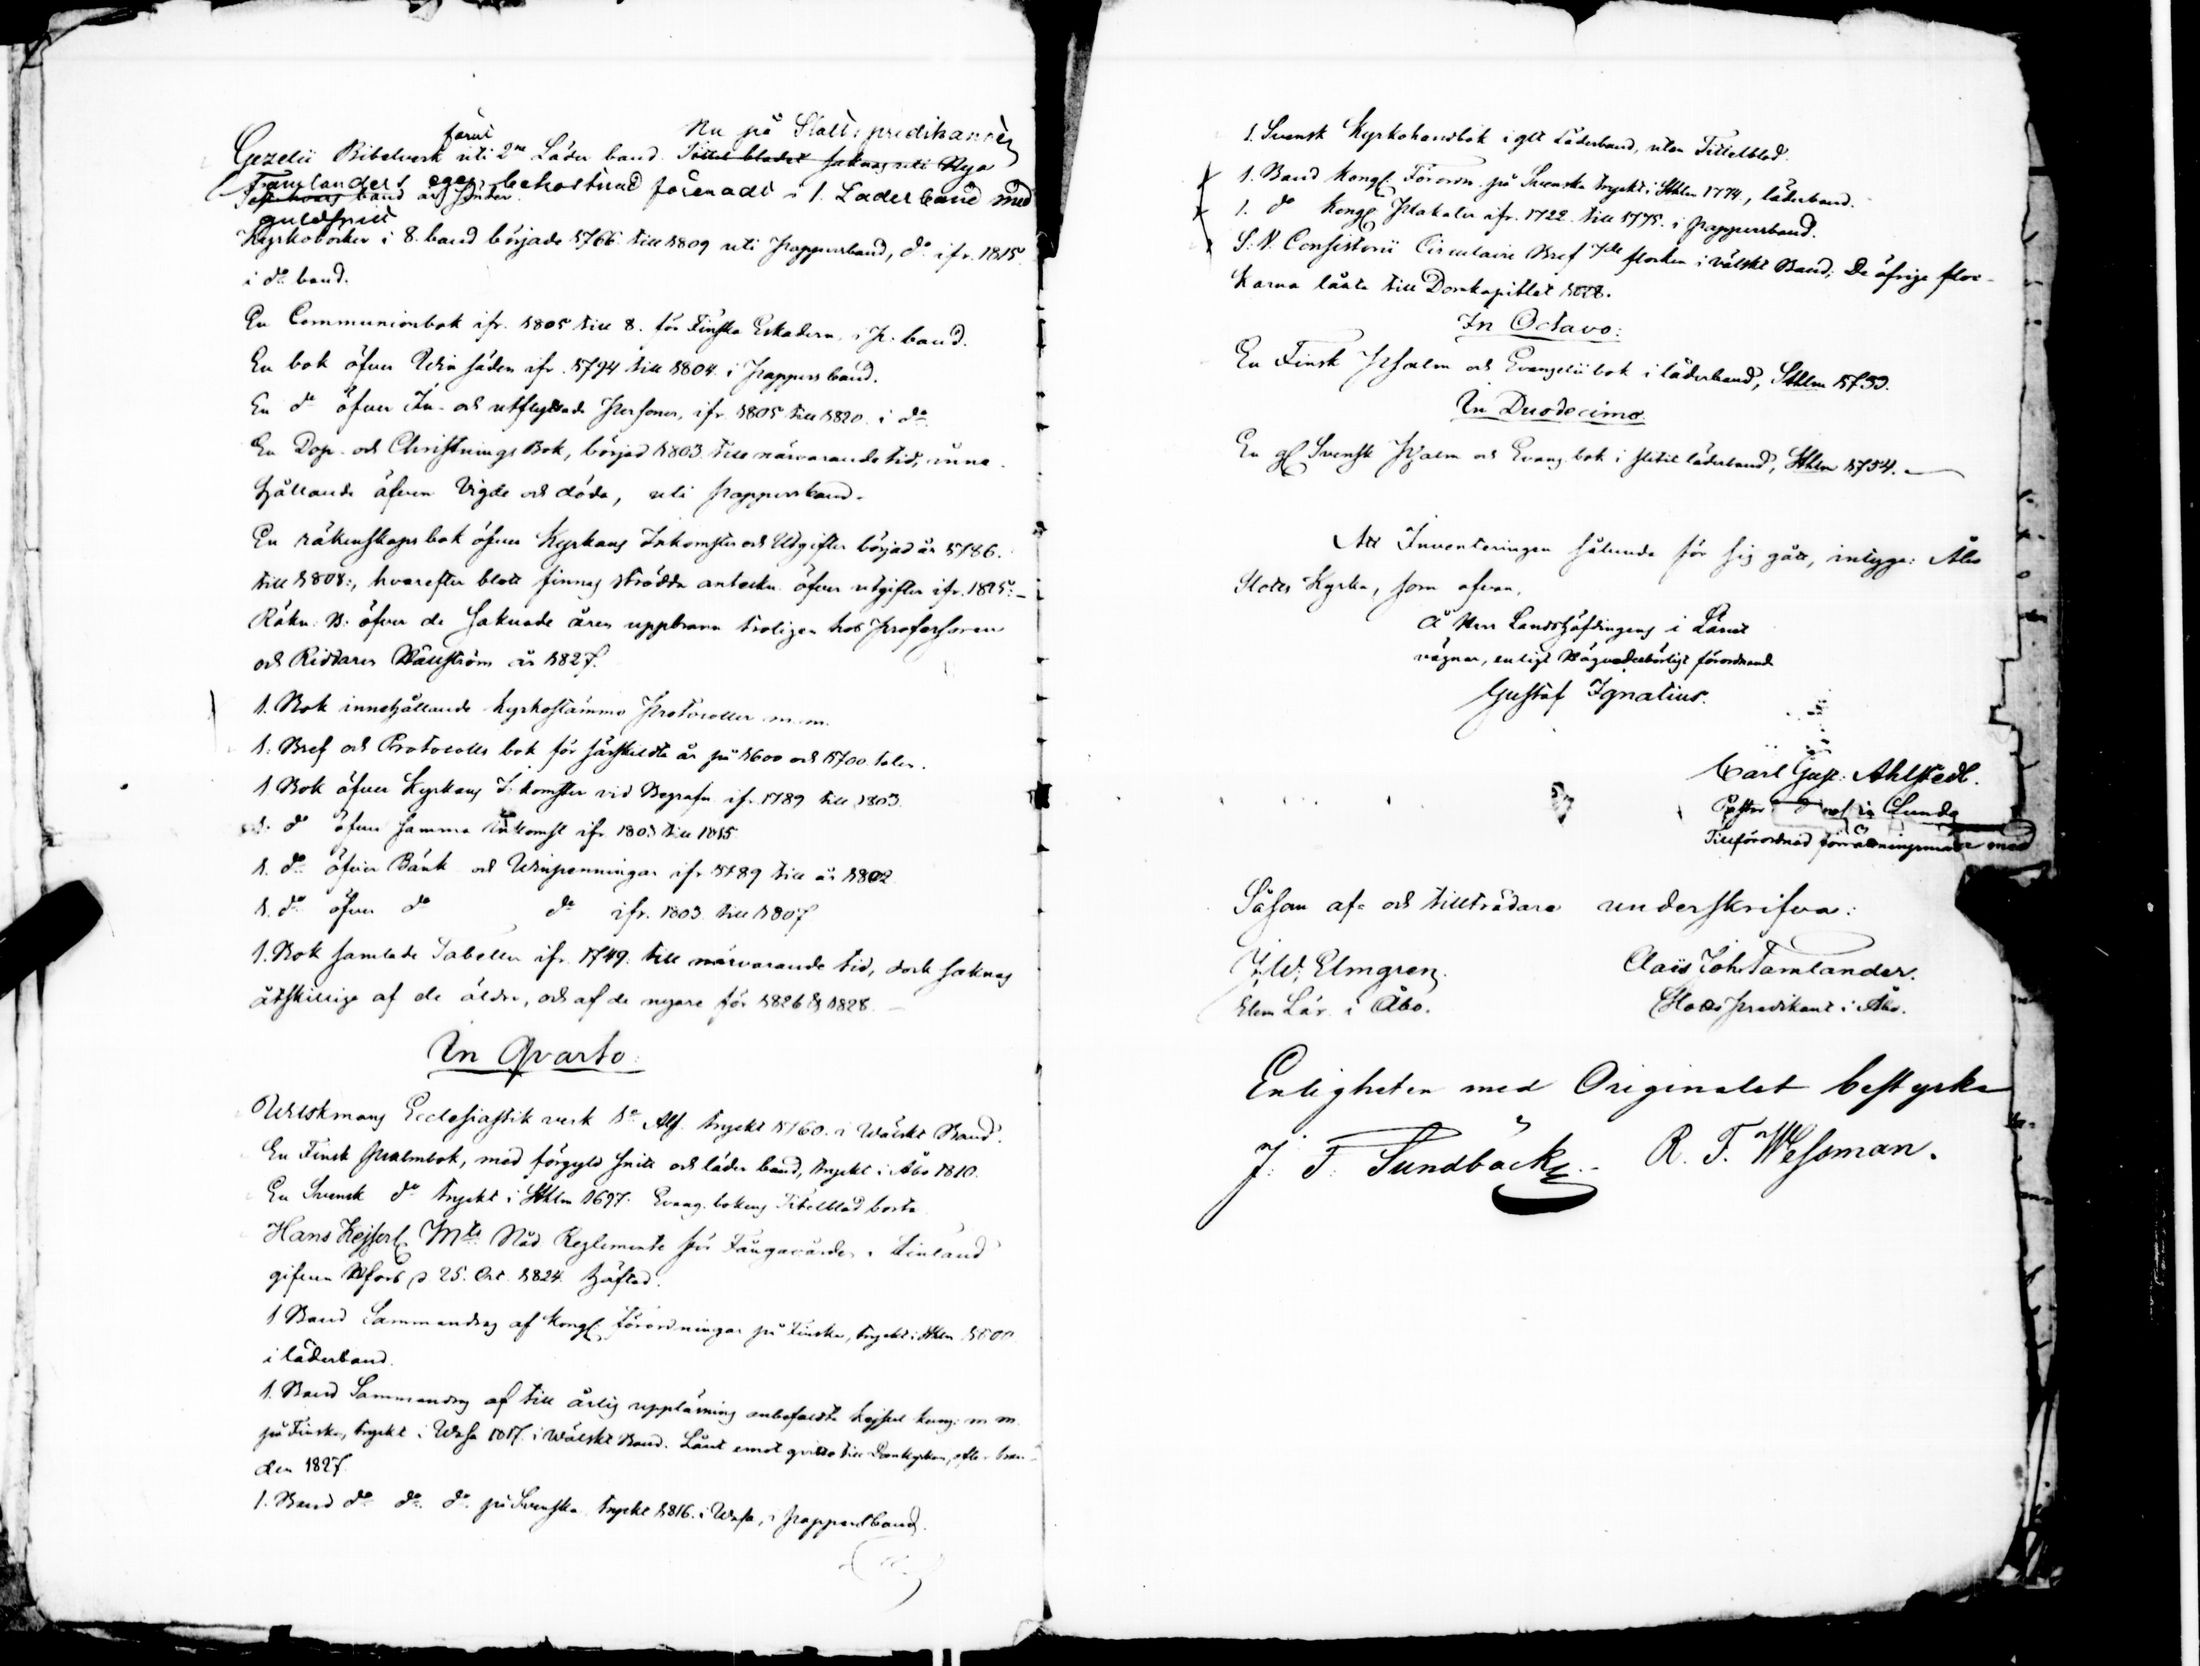 förut Nu på Slotts predikanten
Gezelii Bibelverk uti 2ne Läder band. Tittel bladet saknas uti Nya
Tamlanders egen bekostnad förenadt i 1. Läderband med
band är sönder.
guldsnitt
Kyrkoböcker i 8. band började 1766 till 1809 uti Pappersband, do ifr. 1815
i do band.
En Communionbok ifr. 1805 till 8. för Finska Eskadern, i P. band.
En bok öfver Win säden ifr. 1794 till 1804 i Pappersband.
En do öfver In- och utflyttade Personer, ifr. 1805 till 1820. i do
En Dop- och Christnings Bok, börjad 1803 till närvarande tid, inne-
hållande äfven Vigde och döda, uti pappersband.
En räkenskaps bok öfver Kyrkans Inkomster och Utgifter börjad år 1786.
till 1808:, hvarefter blott finnas strödda anteckn. öfver utgifter ifr. 1825:-
Räkn: B: öfver de saknade åren uppbrann troligen hos Professoren
och Riddaren Wallström år 1827.
1. Bok innehållande Kyrkostämmo Protocoller m.m.
1. Bref och Protocolls bok för särskildta år på 1600 och 1700 talen.
1 Bok öfver Kyrkans Inkomster vid Begrafn. ifr. 1789 till 1803
1. do öfver samma Inkomst ifr 1803 till 1815
1. do öfver Bänk och Winpenningar ifr 1789 till år 1802
1. do öfver do do ifr. 1803 till 1807
1. Bok samlade Tabeller ifr. 1749. till närvarande tid, dock saknas
åtskillige af de äldre, och af de nyare för 1826 & 1828.
In Qvarto:
Wilskmans Ecclesiastik verk 1a Afl. tryckt 1760. i Wälskt Band.
En Finsk Psalmbok, med förgyld snitt och läder band, tryckt i Åbo 1810.
En Svensk do tryckt i Sthlm 1697. Evang. bokens Titelblad borta
Hans Kejserl. Mts Nåd Reglemente för Fångvården i Finland
gifven Hfors d 25. Oct. 1824. häftad.
1 Band Sammandrag af Kongl. Förordningar på Finska, tryckt i Sthlm
i läderband.
1. Band Sammandrag af till årlig uppläsning anbefaldta Kejserl Kung: m m.
på Finska, tryckt i Wasa 1817. i Wälskt Band. Lånt emot qvitto till Domkyrkan, efter bran-
den 1827.
1. Band do do. do. på Svenska tryckt 1816. i Wasa, i Pappersband.
1. Svensk Kyrkohandbok i glt Läderband, utan Tittelblad.
1. Band Kongl. Förordn. på Svenska tryckt i Sthlm 1774., läderband.
1. do Kongl. Plakater ifr. 1722. till 1775. i Pappersband.
S. V. Consistorii Circulaire Bref 7de flocken i välskt Band; De öfrige floc-
karna lånta till Domkapitlet 1828.
In Octavo:
En Finsk Psalm och Evangelii bok i läderband, Sthlm 1733.
In Duodecimo.
En gl Svensk Psalm och Evang. bok i slitit läderband, Sthlm 1754.
Att Inventeringen sålunda för sig gått, intyga: Åbo
Slotts Kyrka, som ofvan,
Å Herr Landshöfdingens i Länet
vägnar, enligt Högvederbörligt förordnande
Gustaf Ignatius.
Carl Gust. Ahlstedt.
Lundo
Tillförordnad förrättningsman med
Såsom af- och tillträdare underskrifva:
J. W. Elmgren. Claës Joh Tamlander.
Elem Lär. i Åbo. Slotts predikant i Åbo.
Enligheten med Originalet bestyrka
J. F. Sundbäck. R. F. Wessman.